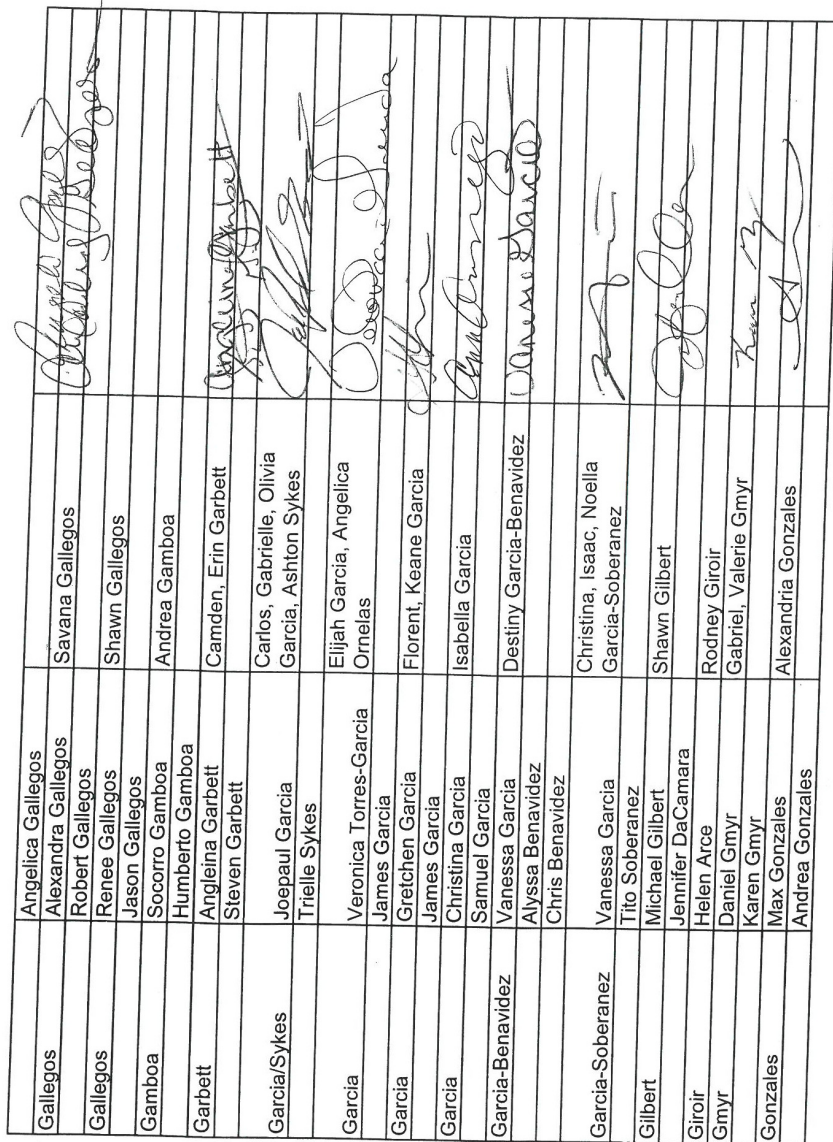 Angelica Gallegos
Gallegos Alexandra Gallegos Savana Gallegos
Robert Gallegos
Gallegos Renee Gallegos Shawn Gallegos
Jason Gallegos
Gamboa Socorro Gamboa Andrea Gamboa
Humberto Gamboa
Garbett Angleina Garbett Camden, Erin Garbett Angleina Garbett
Steven Garbett
Carlos, Gabrielle, Olivia
Garcia/Sykes Joepaul Garcia Garcia, Ashton Sykes
Trielle Sykes
Elijah Garcia, Angelica
Garcia Veronica Torres-Garcia Ornelas
James Garcia
Garcia Gretchen Garcia Florent, Keane Garcia
James Garcia
Garcia Christina Garcia Isabella Garcia
Samuel Garcia
Garcia-Benavidez Vanessa Garcia Destiny Garcia-Benavidez Vanessa Garcia
Alyssa Benavidez
Chris Benavidez
Christina, Isaac, Noella
Garcia-Soberanez Vanessa Garcia Garcia-Soberanez
Tito Soberanez
Gilbert Michael Gilbert Shawn Gilbert
Jennifer DaCamara
Giroir Helen Arce Rodney Giroir
Gmyr Daniel Gmyr Gabriel, Valerie Gmyr
Karen Gmyr
Gonzales Max Gonzales Alexandria Gonzales
Andrea Gonzales